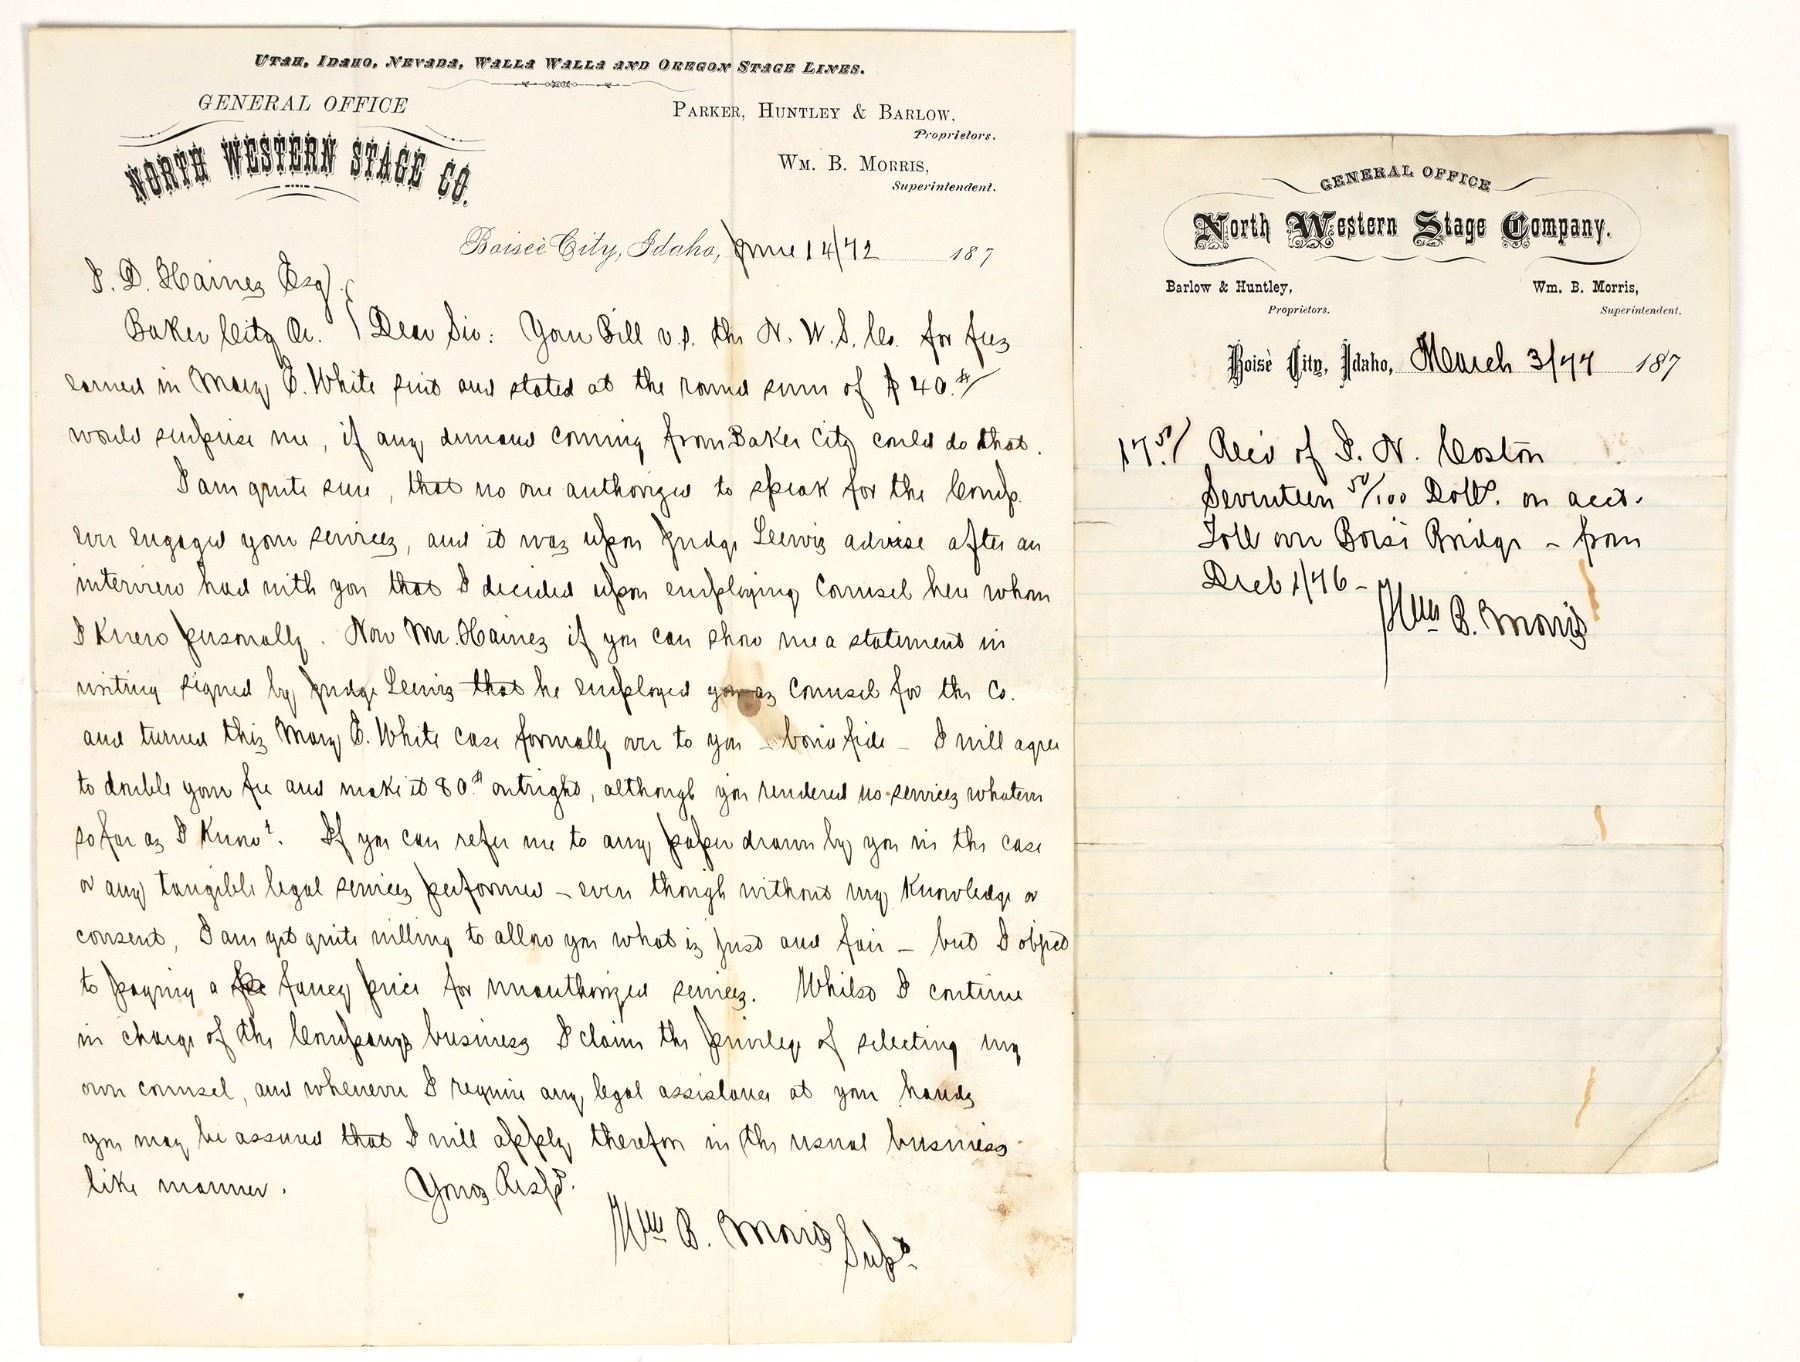 UTAH, IDAHO, NEVADA, WALLA WALLA AND OREGON STAGE LINES.
GENERAL OFFICE
NORTH WESTERN STAGE CO.
PARKER, HUNTLEY & BARLOW,
Proprietors.
WM. B. MORRIS,
Superintendent.
Boiseè City, Idaho, June 14/72 187
I. D. Haines Esq.
Baker City Or. Dear Sir: Your Bill v.s. the N. W. S. Co. for fees
earned in Mary E. White suit and stated at the round sum of $40.00/
would surprise me, if any demand coming from Baker City could do that.
I am quite sure, that no one authorized to speak for the Comp.
ever engaged your services, and it was upon Judge Lewis advise after an
interview had with you that I decided upon employing Counsel here whom
I Knew personally. Now Mr. Haines if you can show me a statement in
writing signed by Judge Lewis that he employed you as Counsel for the Co.
and turned this Mary E. White case formally over to you - bona fide - I will agree
to double your fee and make it 80.00 outright, although you rendered no services whatever
so far as I Know. If you can refer me to any paper drawn by you in the case
or any tangible legal services performed - even though without my Knowledge or
consent, I am yet quite willing to allow you what is just and fair - but I object
to paying a fancy price for unauthorized services. Whilst I continue
in charge of the Companys business I claim the privilege of selecting my
own counsel, and whenever I require any legal assistance at your hands
you may be assured that I will apply therefor in the usual business
like manner. Yours Respt.
Wm B. Morris Supt.
GENERAL OFFICE
North Western Stage Company.
Barlow & Huntley,
Proprietors.
Wm. B. Morris,
Superintendent.
Boisè City, Idaho, March 3/77 187
17.50/ Rec'd of I. N. Coston
Seventeen 50/100 Dolls. on acct.
Toll over Boise Bridge - from
Decb 1/76 -
Wm B. Morris